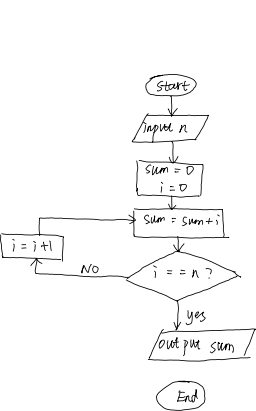 Start
input n
sum = 0
i = 0
sum = sum + i
i = i + 1
i == n ?
NO
yes
output sum
End